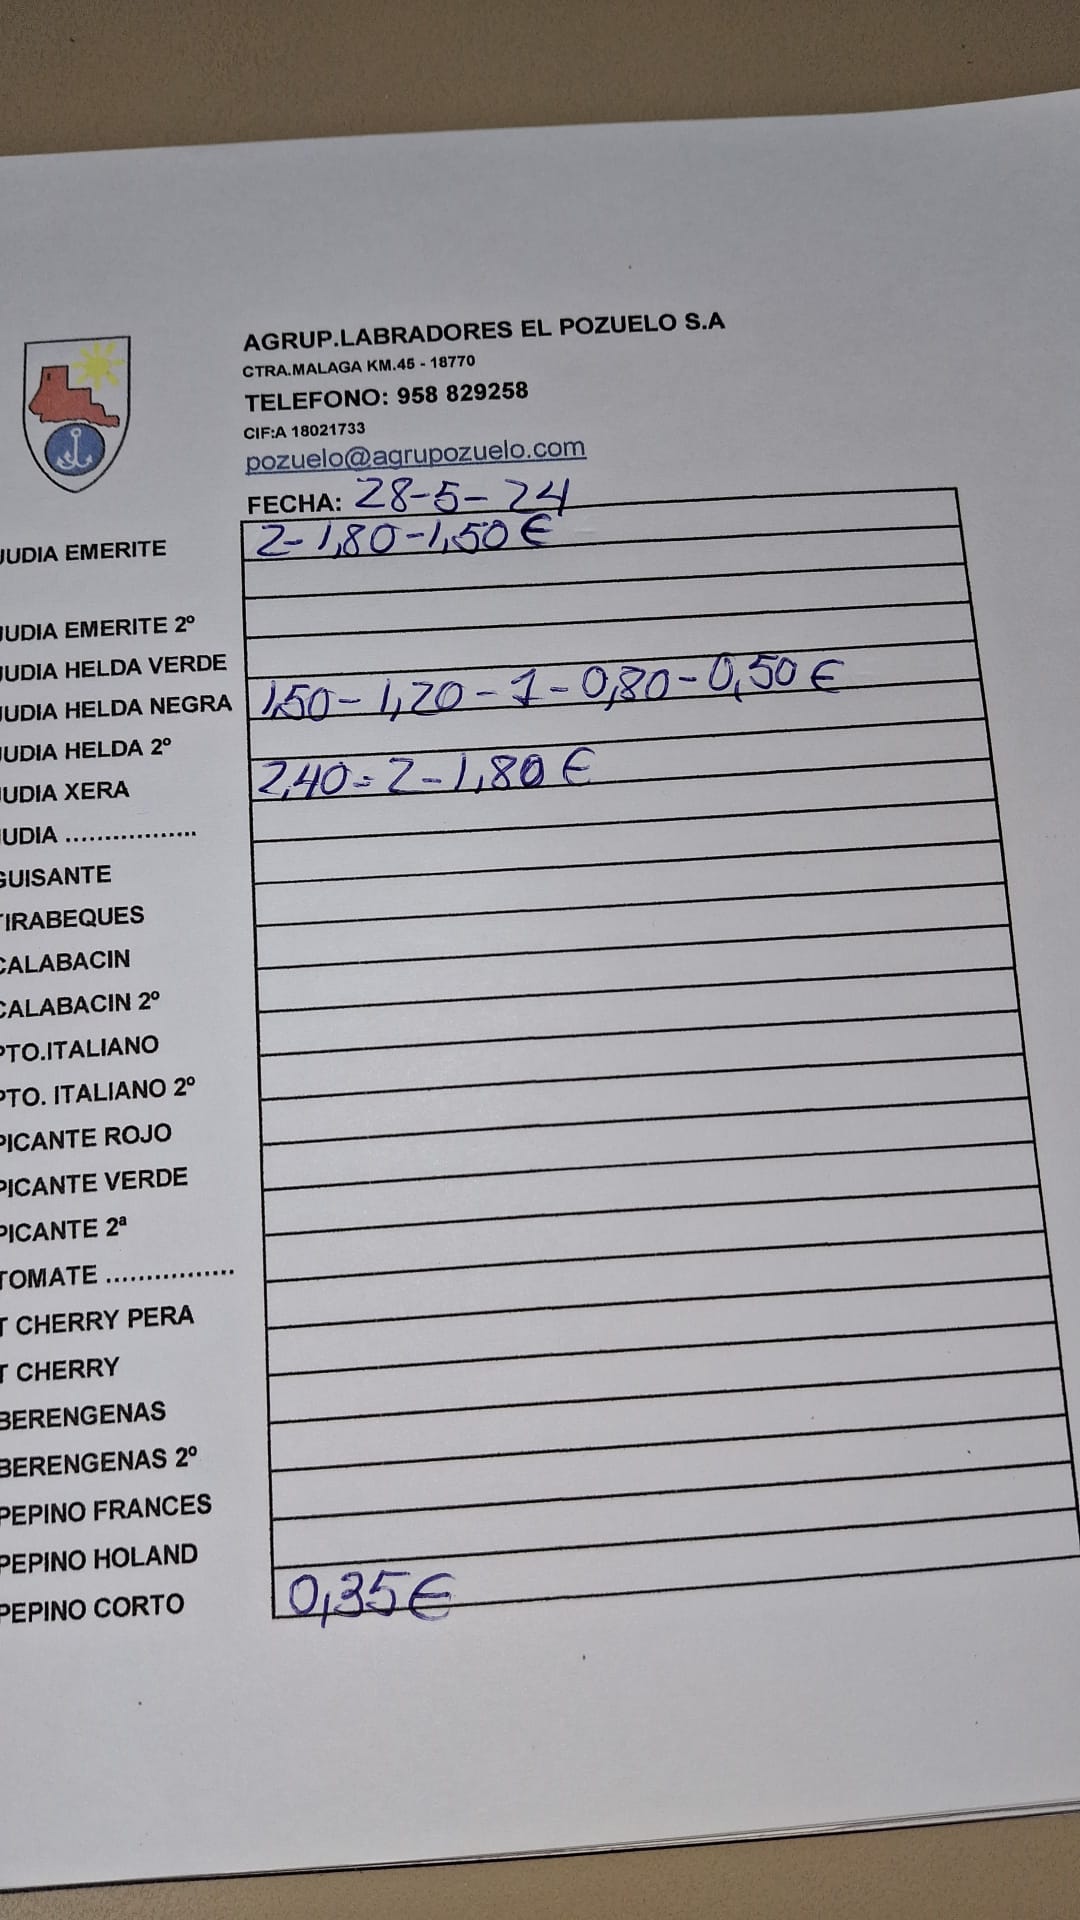 AGRUP.LABRADORES EL POZUELO S.A
CTRA.MALAGA KM.45 - 18770
TELEFONO: 958 829258
CIF:A 18021733
pozuelo@agrupozuelo.com
FECHA: 28-5-24
JUDIA EMERITE 2-1,80-1,50 €
JUDIA EMERITE 2º
JUDIA HELDA VERDE
JUDIA HELDA NEGRA 1,50-1,20-1-0,80-0,50 €
JUDIA HELDA 2º
JUDIA XERA 2,40-2-1,80 €
JUDIA .................
GUISANTE
TIRABEQUES
CALABACIN
CALABACIN 2º
PTO.ITALIANO
PTO. ITALIANO 2º
PICANTE ROJO
PICANTE VERDE
PICANTE 2ª
TOMATE ................
T CHERRY PERA
T CHERRY
BERENGENAS
BERENGENAS 2º
PEPINO FRANCES
PEPINO HOLAND
PEPINO CORTO 0,35€